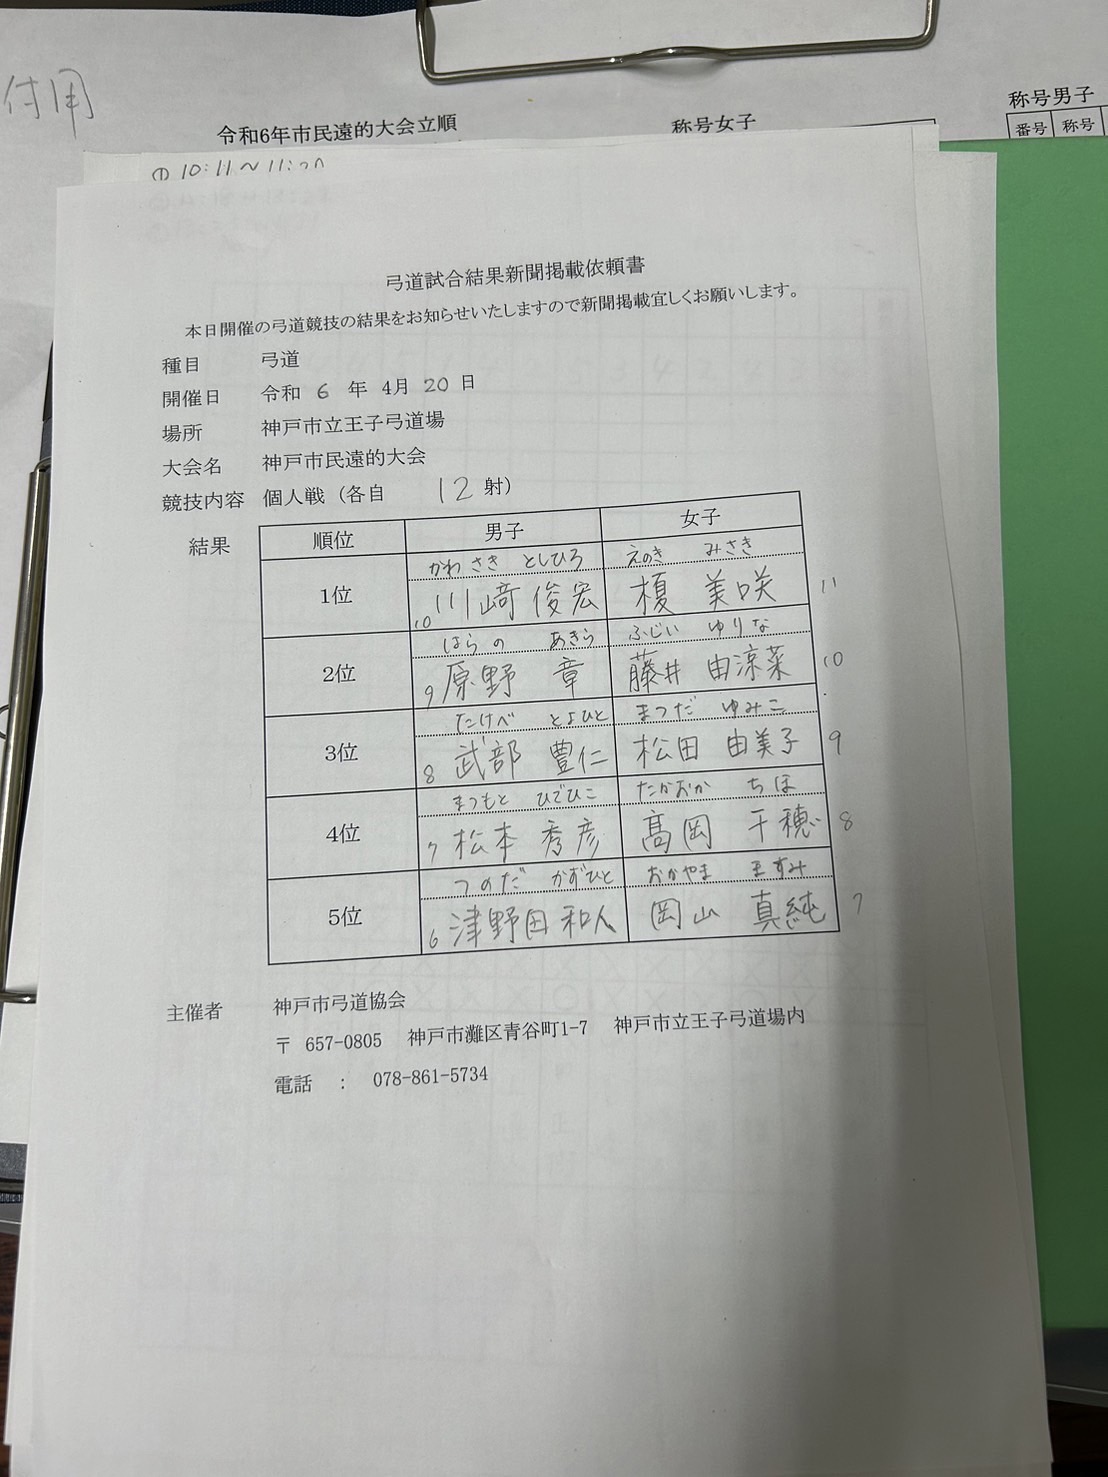 付用
令和6年市民遠的大会立順
称号女子
称号男子
番号 称号
① 10:11～11:
弓道試合結果新聞掲載依頼書
本日開催の弓道競技の結果をお知らせいたしますので新聞掲載宜しくお願いします。
種目 弓道
開催日 令和 6 年 4月 20 日
場所 神戸市立王子弓道場
大会名 神戸市民遠的大会
競技内容 個人戦（各自 12 射）
結果
順位 男子 女子
かわさき としひろ えのき みさき
1位 10 川﨑 俊宏 榎 美咲 11
はらの あきら ふじい ゆりな
2位 9 原野 章 藤井 由涼菜 10
たけべ とよひと まつだ ゆみこ
3位 8 武部 豊仁 松田 由美子 9
まつもと ひでひこ たかおか ちほ
4位 7 松本 秀彦 髙岡 千穂 8
つのだ かずひと おかやま ますみ
5位 6 津野田 和人 岡山 真純 7
主催者 神戸市弓道協会
〒 657-0805 神戸市灘区青谷町1-7 神戸市立王子弓道場内
電話 : 078-861-5734